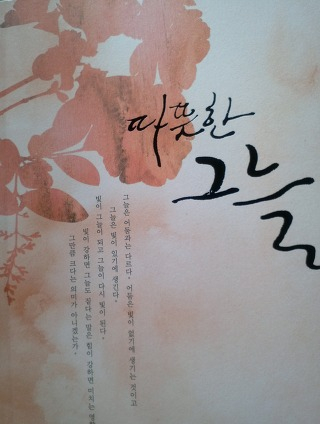 따뜻한
그늘
그늘은 어둠과는 다르다. 어둠은 빛이 없기에 생기는 것이고
그늘은 빛이 있기에 생긴다.
빛이 그늘이 되고 그늘이 다시 빛이 된다.
빛이 강하면 그늘도 짙다는 말은 힘이 강하면 미치는 영향
그만큼 크다는 의미가 아니겠는가.